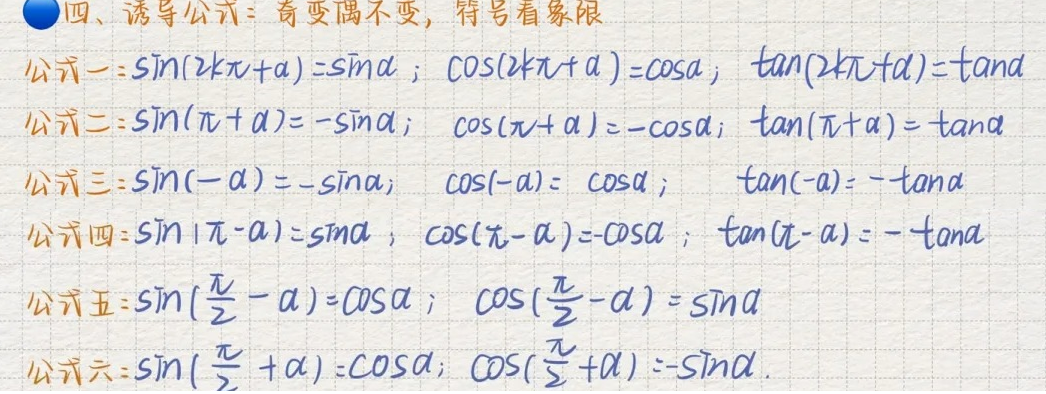 四、诱导公式：奇变偶不变，符号看象限
公式一：sin(2kπ+α)=sinα； cos(2kπ+α)=cosα； tan(2kπ+α)=tanα
公式二：sin(π+α)=-sinα； cos(π+α)=-cosα； tan(π+α)=tanα
公式三：sin(-α)=-sinα； cos(-α)=cosα； tan(-α)=-tanα
公式四：sin(π-α)=sinα； cos(π-α)=-cosα； tan(π-α)=-tanα
公式五：sin(π/2-α)=cosα； cos(π/2-α)=sinα
公式六：sin(π/2+α)=cosα； cos(π/2+α)=-sinα.